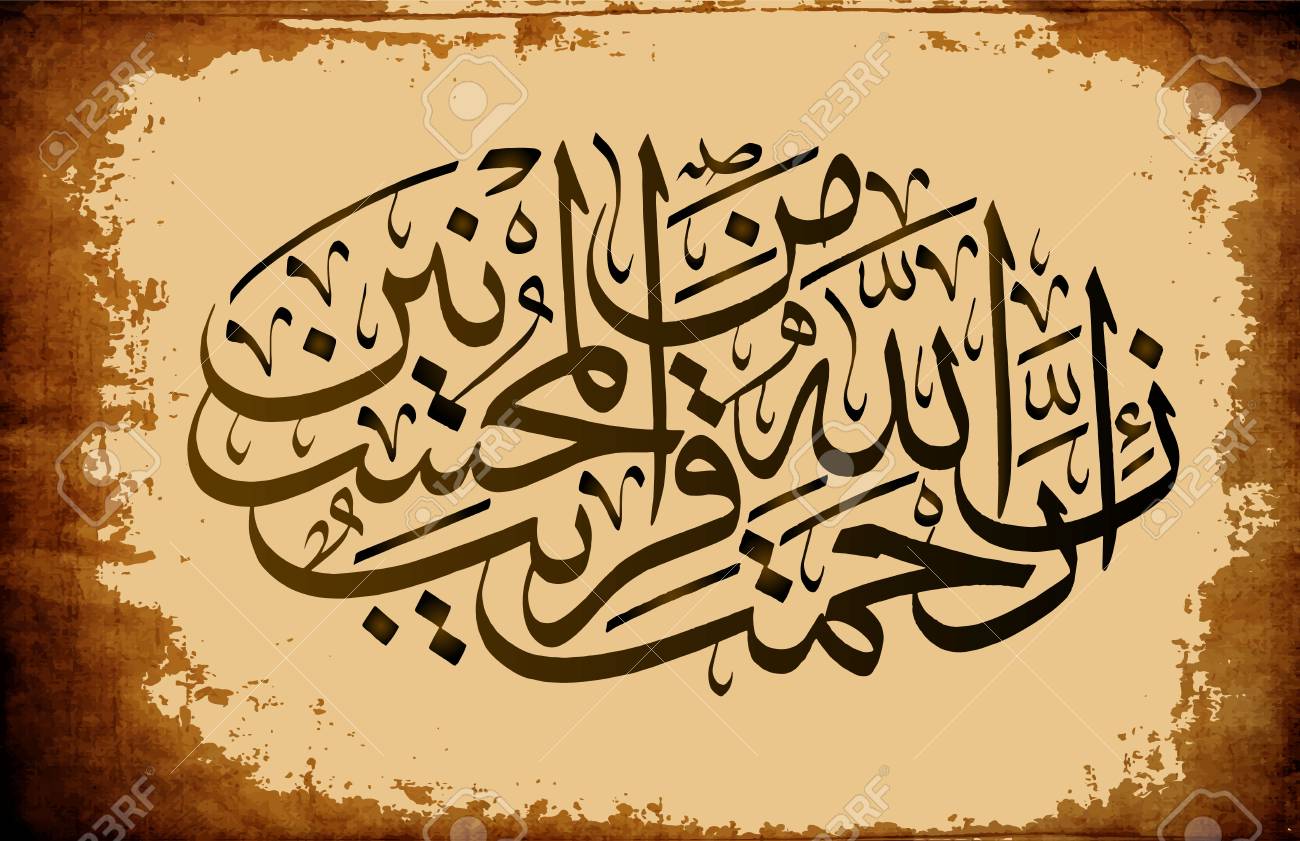 إن رحمت الله قريب من المحسنين
123RF
123RF
123RF
123RF
123RF
123RF
123RF
123RF
123RF
123RF
123RF